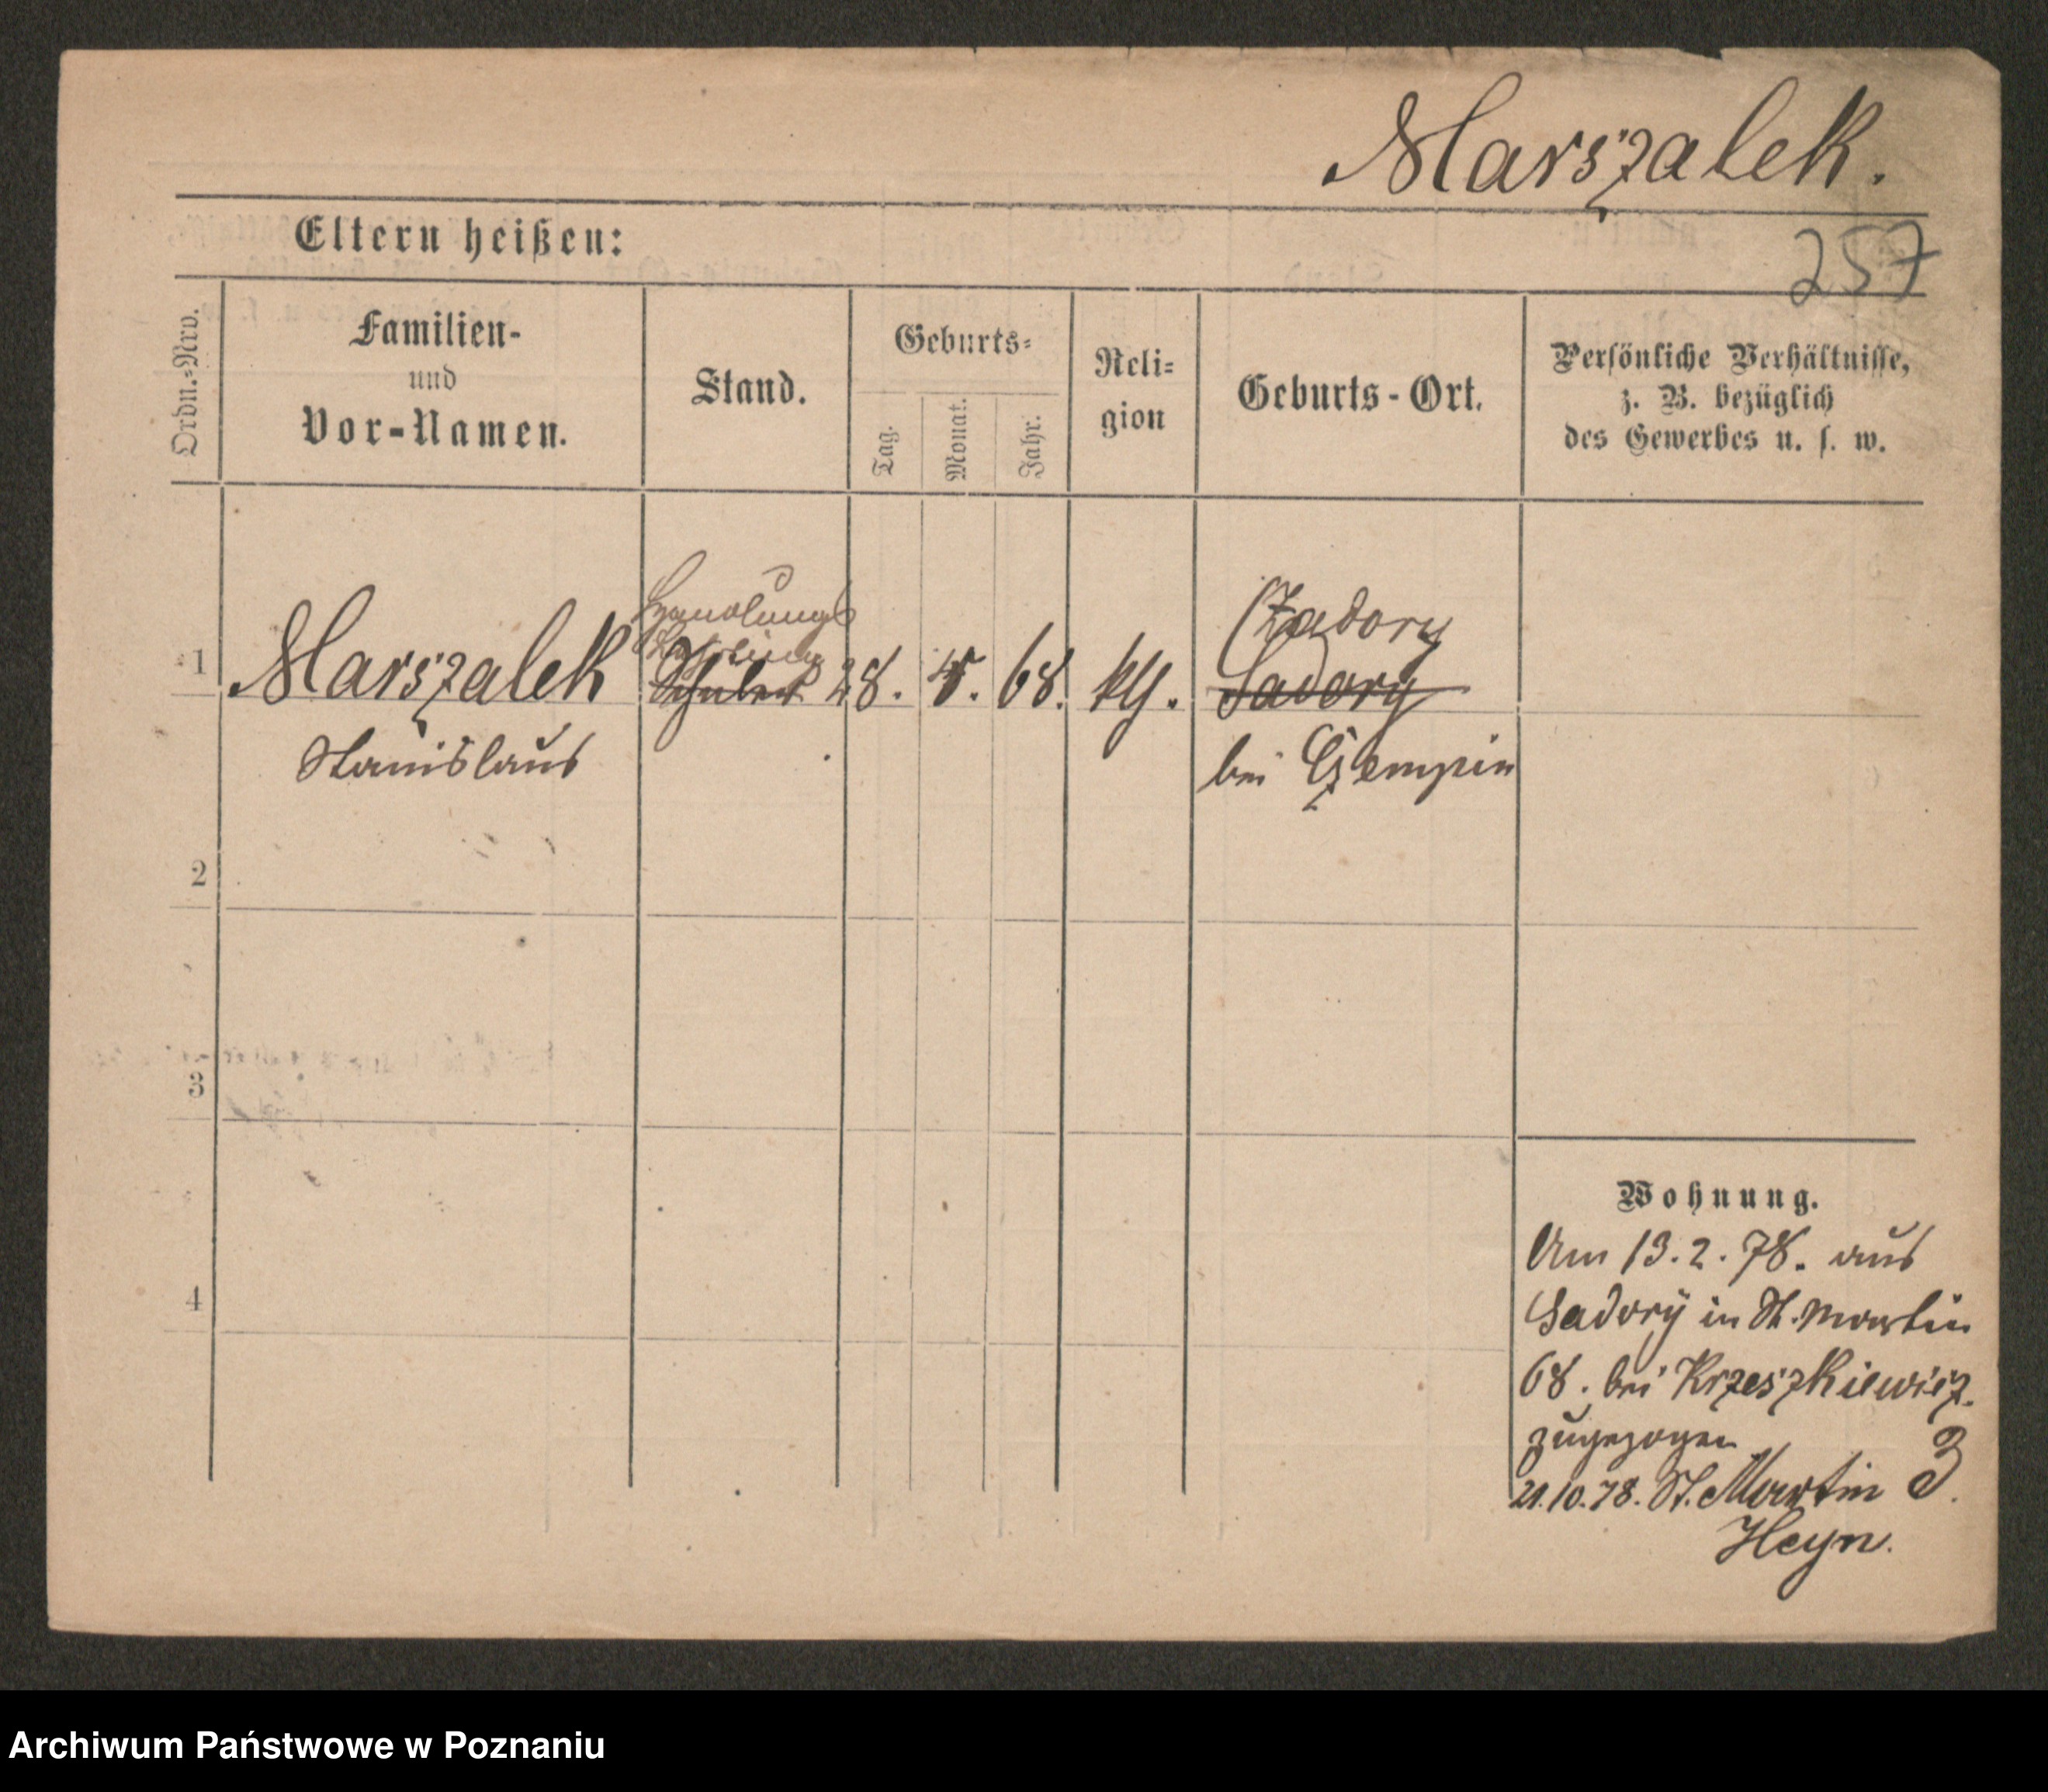 Marszalek.
Eltern heißen:
257
Ordn.=Nro.
Familien-
und
Vor-Namen.
Stand.
Geburts=
Tag.
Monat.
Jahr.
Reli=
gion
Geburts-Ort.
Persönliche Verhältnisse,
z. B. bezüglich
des Gewerbes u. s. w.
Handlungs
Lehrling
1 Marszalek Schüler 28. 4. 68. kth. Sadory
Zadory
Stanislaus bei Czempin
2
3
4
Wohnung.
Am 13.2.78. aus
Sadory in St. Martin
68. bei Krzeszkiewicz.
zugezogen
21.10.78. St. Martin 3.
Heyn.
Archiwum Państwowe w Poznaniu